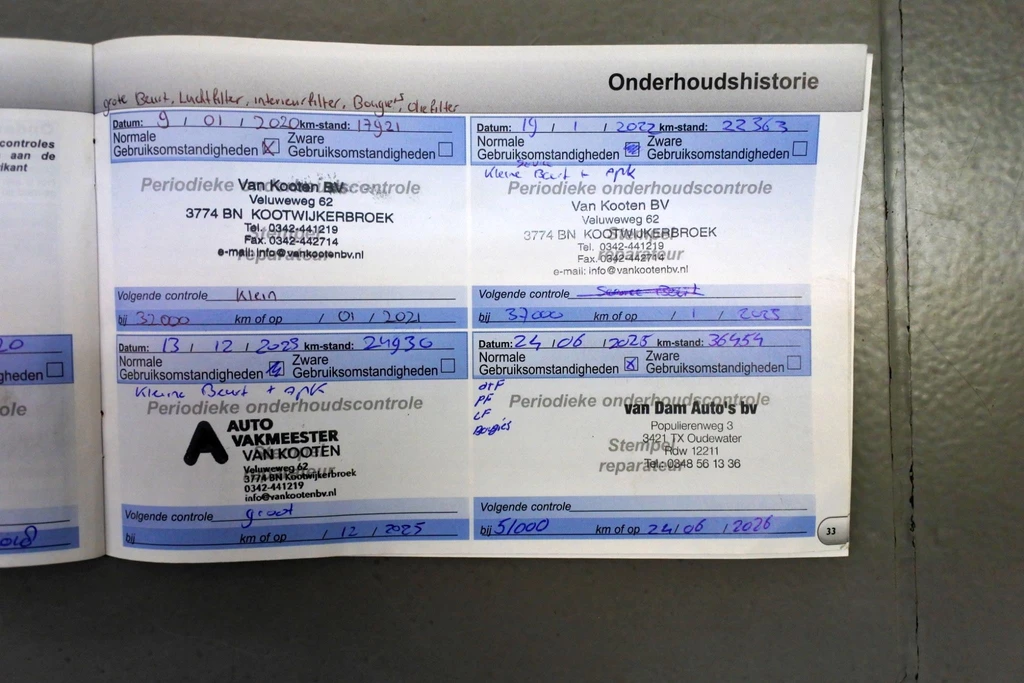 Onderhoudshistorie
controles
aan de
ikant
grote Beurt, Luchtfilter, interieurfilter, Bougies, oliefilter
Datum: 9 / 01 / 2020 km-stand: 17921
Normale Gebruiksomstandigheden X Zware Gebruiksomstandigheden
Periodieke onderhoudscontrole
Stempel reparateur
Van Kooten BV
Veluweweg 62
3774 BN KOOTWIJKERBROEK
Tel. 0342-441219
Fax. 0342-442714
e-mail: info@vankootenbv.nl
Volgende controle Klein
bij 32000 km of op / 01 / 2021
Datum: 19 / 1 / 2022 km-stand: 22363
Normale Gebruiksomstandigheden Zware Gebruiksomstandigheden
Kleine Beurt + apk
Periodieke onderhoudscontrole
Stempel reparateur
Van Kooten BV
Veluweweg 62
3774 BN KOOTWIJKERBROEK
Tel. 0342-441219
Fax. 0342-442714
e-mail: info@vankootenbv.nl
Volgende controle
bij 37000 km of op / 1 / 2023
Datum: 13 / 12 / 2023 km-stand: 24930
Normale Gebruiksomstandigheden Zware Gebruiksomstandigheden
Kleine Beurt + apk
Periodieke onderhoudscontrole
Stempel reparateur
AUTO
VAKMEESTER
VAN KOOTEN
Veluweweg 62
3774 BN Kootwijkerbroek
0342-441219
info@vankootenbv.nl
Volgende controle groot
bij km of op / 12 / 2025
Datum: 24 / 06 / 2025 km-stand: 36454
Normale Gebruiksomstandigheden X Zware Gebruiksomstandigheden
PF
LF
Bougies
Periodieke onderhoudscontrole
Stempel reparateur
van Dam Auto's bv
Populierenweg 3
3421 TX Oudewater
Rdw 12211
Tel.: 0348 56 13 36
Volgende controle
bij 51000 km of op 24 / 06 / 2026
33